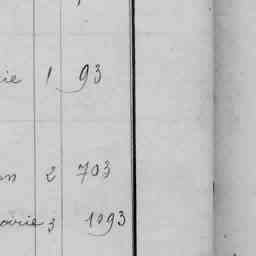 ie 1 93
n 2 703
airie 3 1093